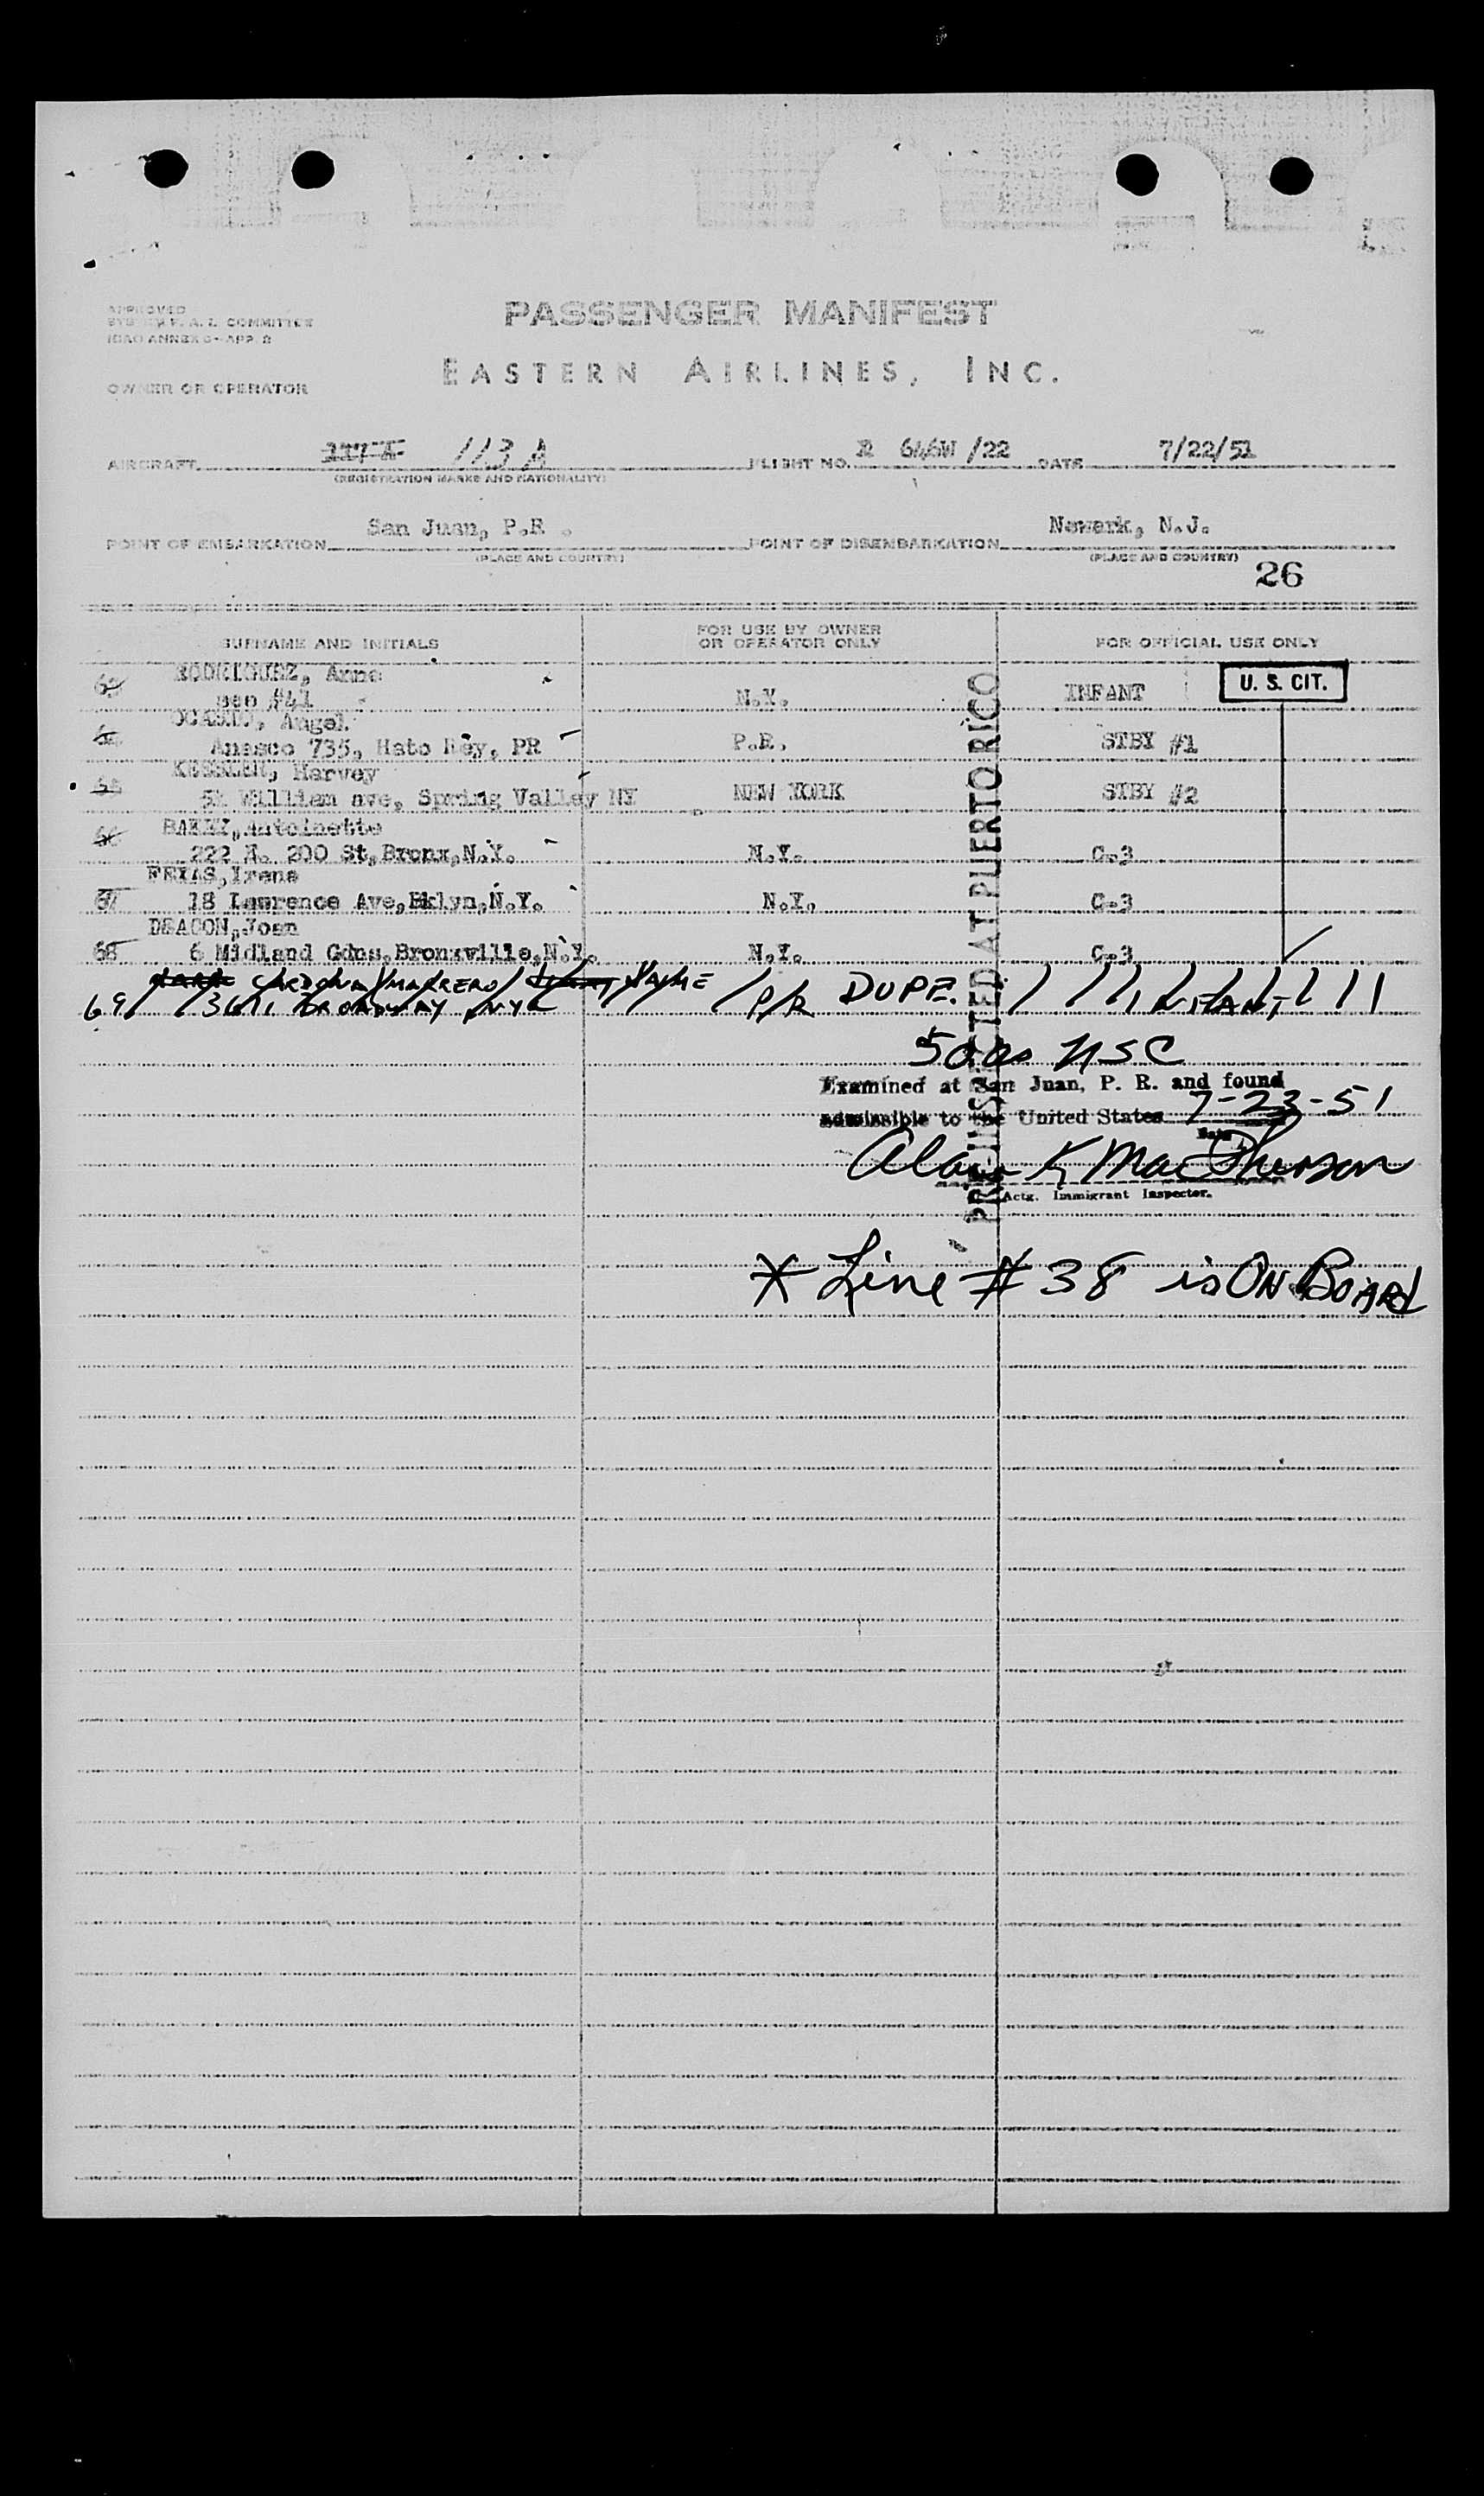 APPROVED
F. A. L. COMMITTEE
ICAO ANNEX 9-APP. 2
PASSENGER MANIFEST
EASTERN AIRLINES, INC.
OWNER OR OPERATOR
AIRCRAFT 113A FLIGHT NO. 646W /22 DATE 7/22/51
(REGISTRATION MARKS AND NATIONALITY)
POINT OF EMBARKATION San Juan, P.R . POINT OF DISEMBARKATION Newark, N.J.
(PLACE AND COUNTRY) (PLACE AND COUNTRY)
26
SURNAME AND INITIALS FOR USE BY OWNER OR OPERATOR ONLY FOR OFFICIAL USE ONLY
RODRIGUEZ, Anne
63 see #41 N.Y. INFANT U. S. CIT.
OCASIO, Angel
64 Anasco 735, Hato Rey, PR P.R. STBY #1
KESSLER, Harvey
65 William ave, Spring Valley NY NEW YORK STBY #2
Antoinette
66 222 200 St, Bronx, N.Y. N.Y. C-3
FRIAS, Irene
67 18 Lawrence Ave, Bklyn, N.Y. N.Y. C-3
DEACON, Joan
68 6 Midland Gdns, Bronxville, N.Y. N.Y. C-3
CARDONA MARRERO JAIME
69 3671 BROADWAY NYC P/R DUPE. INFANT
PRE-INSPECTED AT PUERTO RICO
NSC
Examined at San Juan, P. R. and found
admissible to the United States 7-23-51
Date
Alan K MacPherson
Actg. Immigrant Inspector.
* Line # 38 is ON BOARD